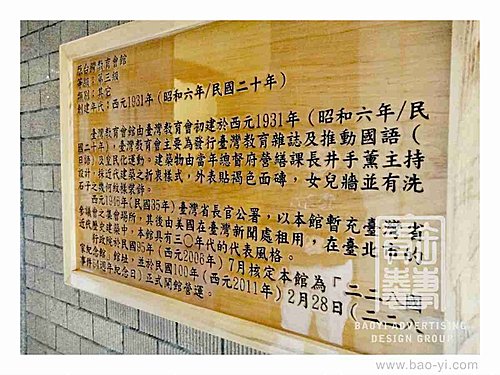 原台灣教育會館
等級:第三級
類別:其它
創建年代:西元1931年(昭和六年/民國二十年)
臺灣教育會館由臺灣教育會初建於西元1931年(昭和六年/民
國二十年),臺灣教育會主要為發行臺灣教育雜誌及推動國語(
日語)及皇民化運動。建築物由當年總督府營繕課長井手薰主持
設計,採近代建築之折衷樣式,外表貼褐色面磚,女兒牆並有洗
石子之幾何紋樣裝飾。
西元1946年(民國35年)臺灣省長官公署,以本館暫充臺灣省
參議會之集會場所,其後由美國在臺灣新聞處租用,在臺北市的
近代歷史建築中,本館具有三〇年代的代表風格。
行政院於民國95年(西元2006年)7月核定本館為「二二八國
家紀念館」館址,並於民國100年(西元2011年)2月28日(二二八
事件64週年紀念日)正式開館營運。
BAOYI ADVERTISING
DESIGN GROUP
www.bao-yi.com